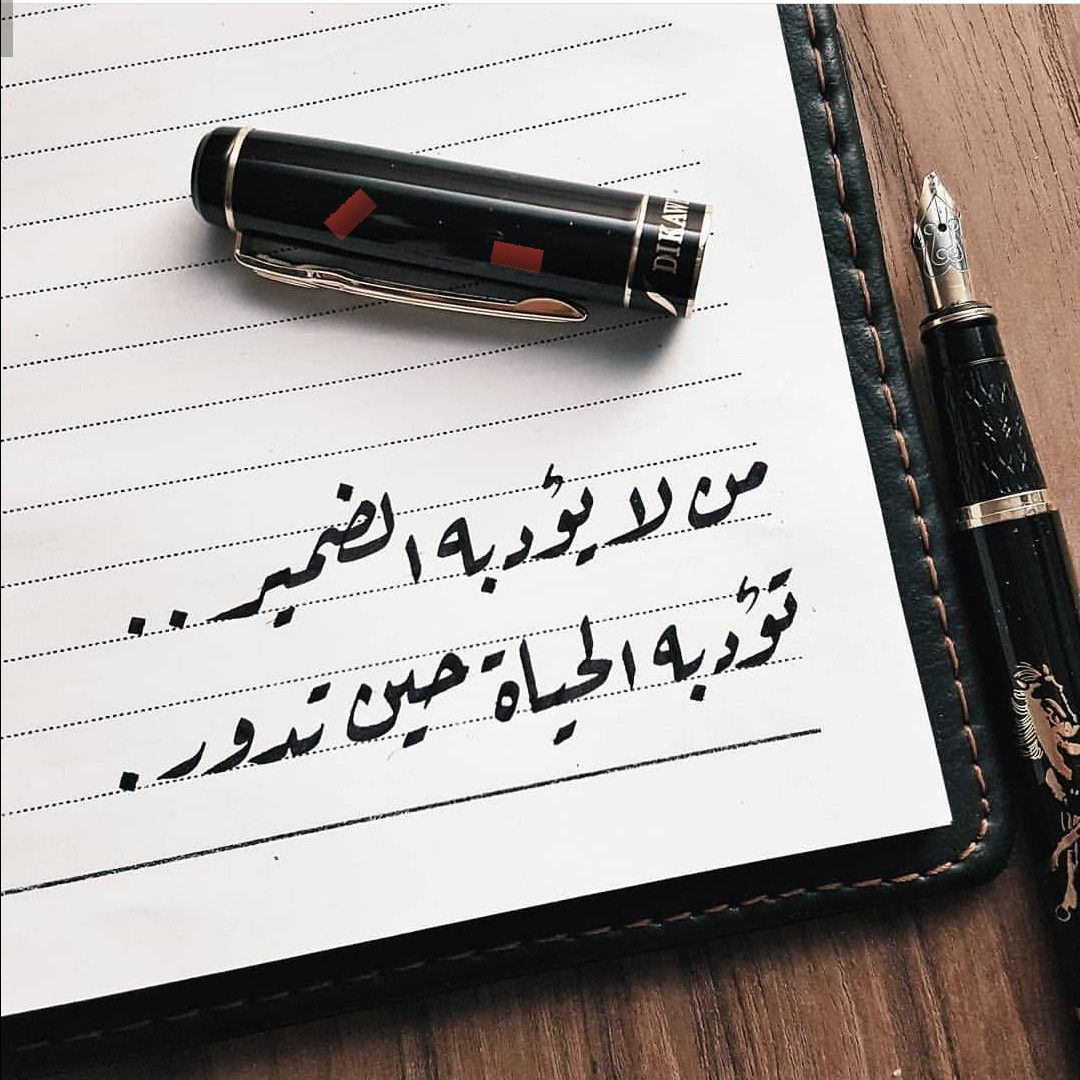 DIKAW
من لا يؤدبه الضمير ..
تؤدبه الحياة حين تدور .